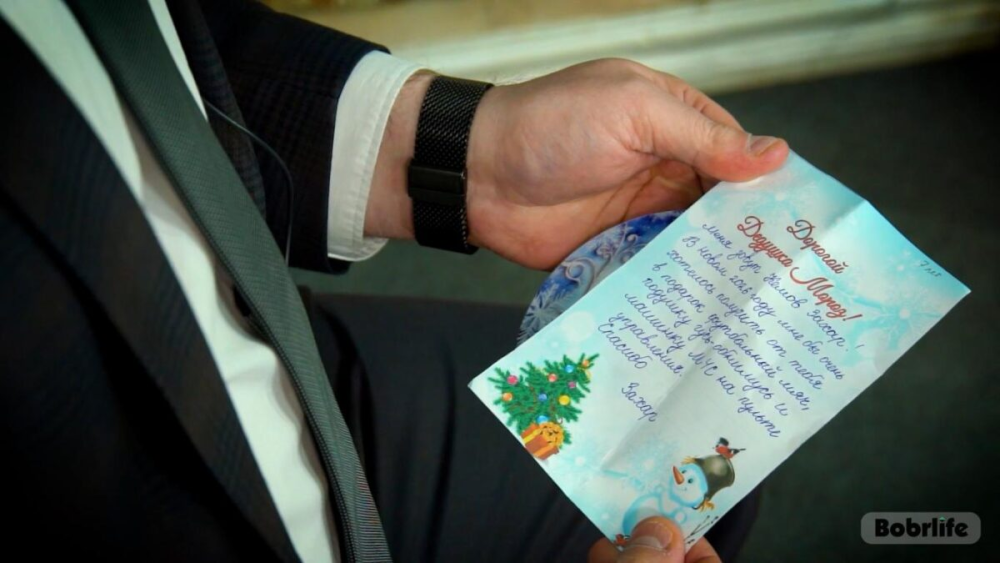 Дорогой
Дедушка Мороз!
7 лет
меня зовут Захар!
В новом 2026 году мне бы очень
хотелось получить от тебя
в подарок футбольный мяч,
подушку где обнимусь и
машинку МЧС на пульте
управления.
Спасибо Захар
Bobrlife